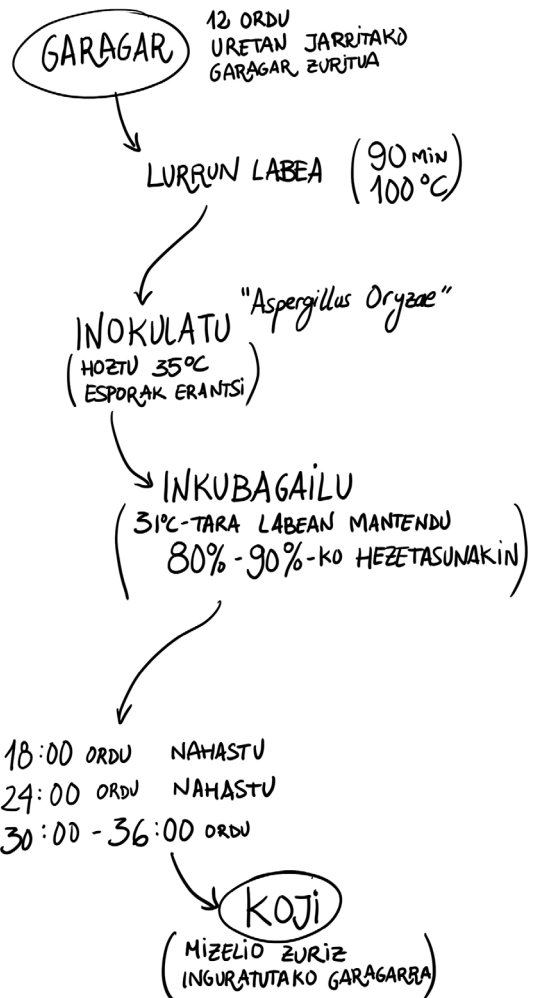 GARAGAR
12 ORDU
URETAN JARRITAKO
GARAGAR ZURITUA
LURRUN LABEA
(90 MIN
100°C)
INOKULATU
"Aspergillus Oryzae"
(HOZTU 35°C
ESPORAK ERANTSI)
INKUBAGAILU
(31°C-TARA LABEAN MANTENDU
80%-90%-KO HEZETASUNAKIN)
18:00 ORDU NAHASTU
24:00 ORDU NAHASTU
30:00 - 36:00 ORDU
KOJI
(MIZELIO ZURIZ
INGURATUTAKO GARAGARRA)